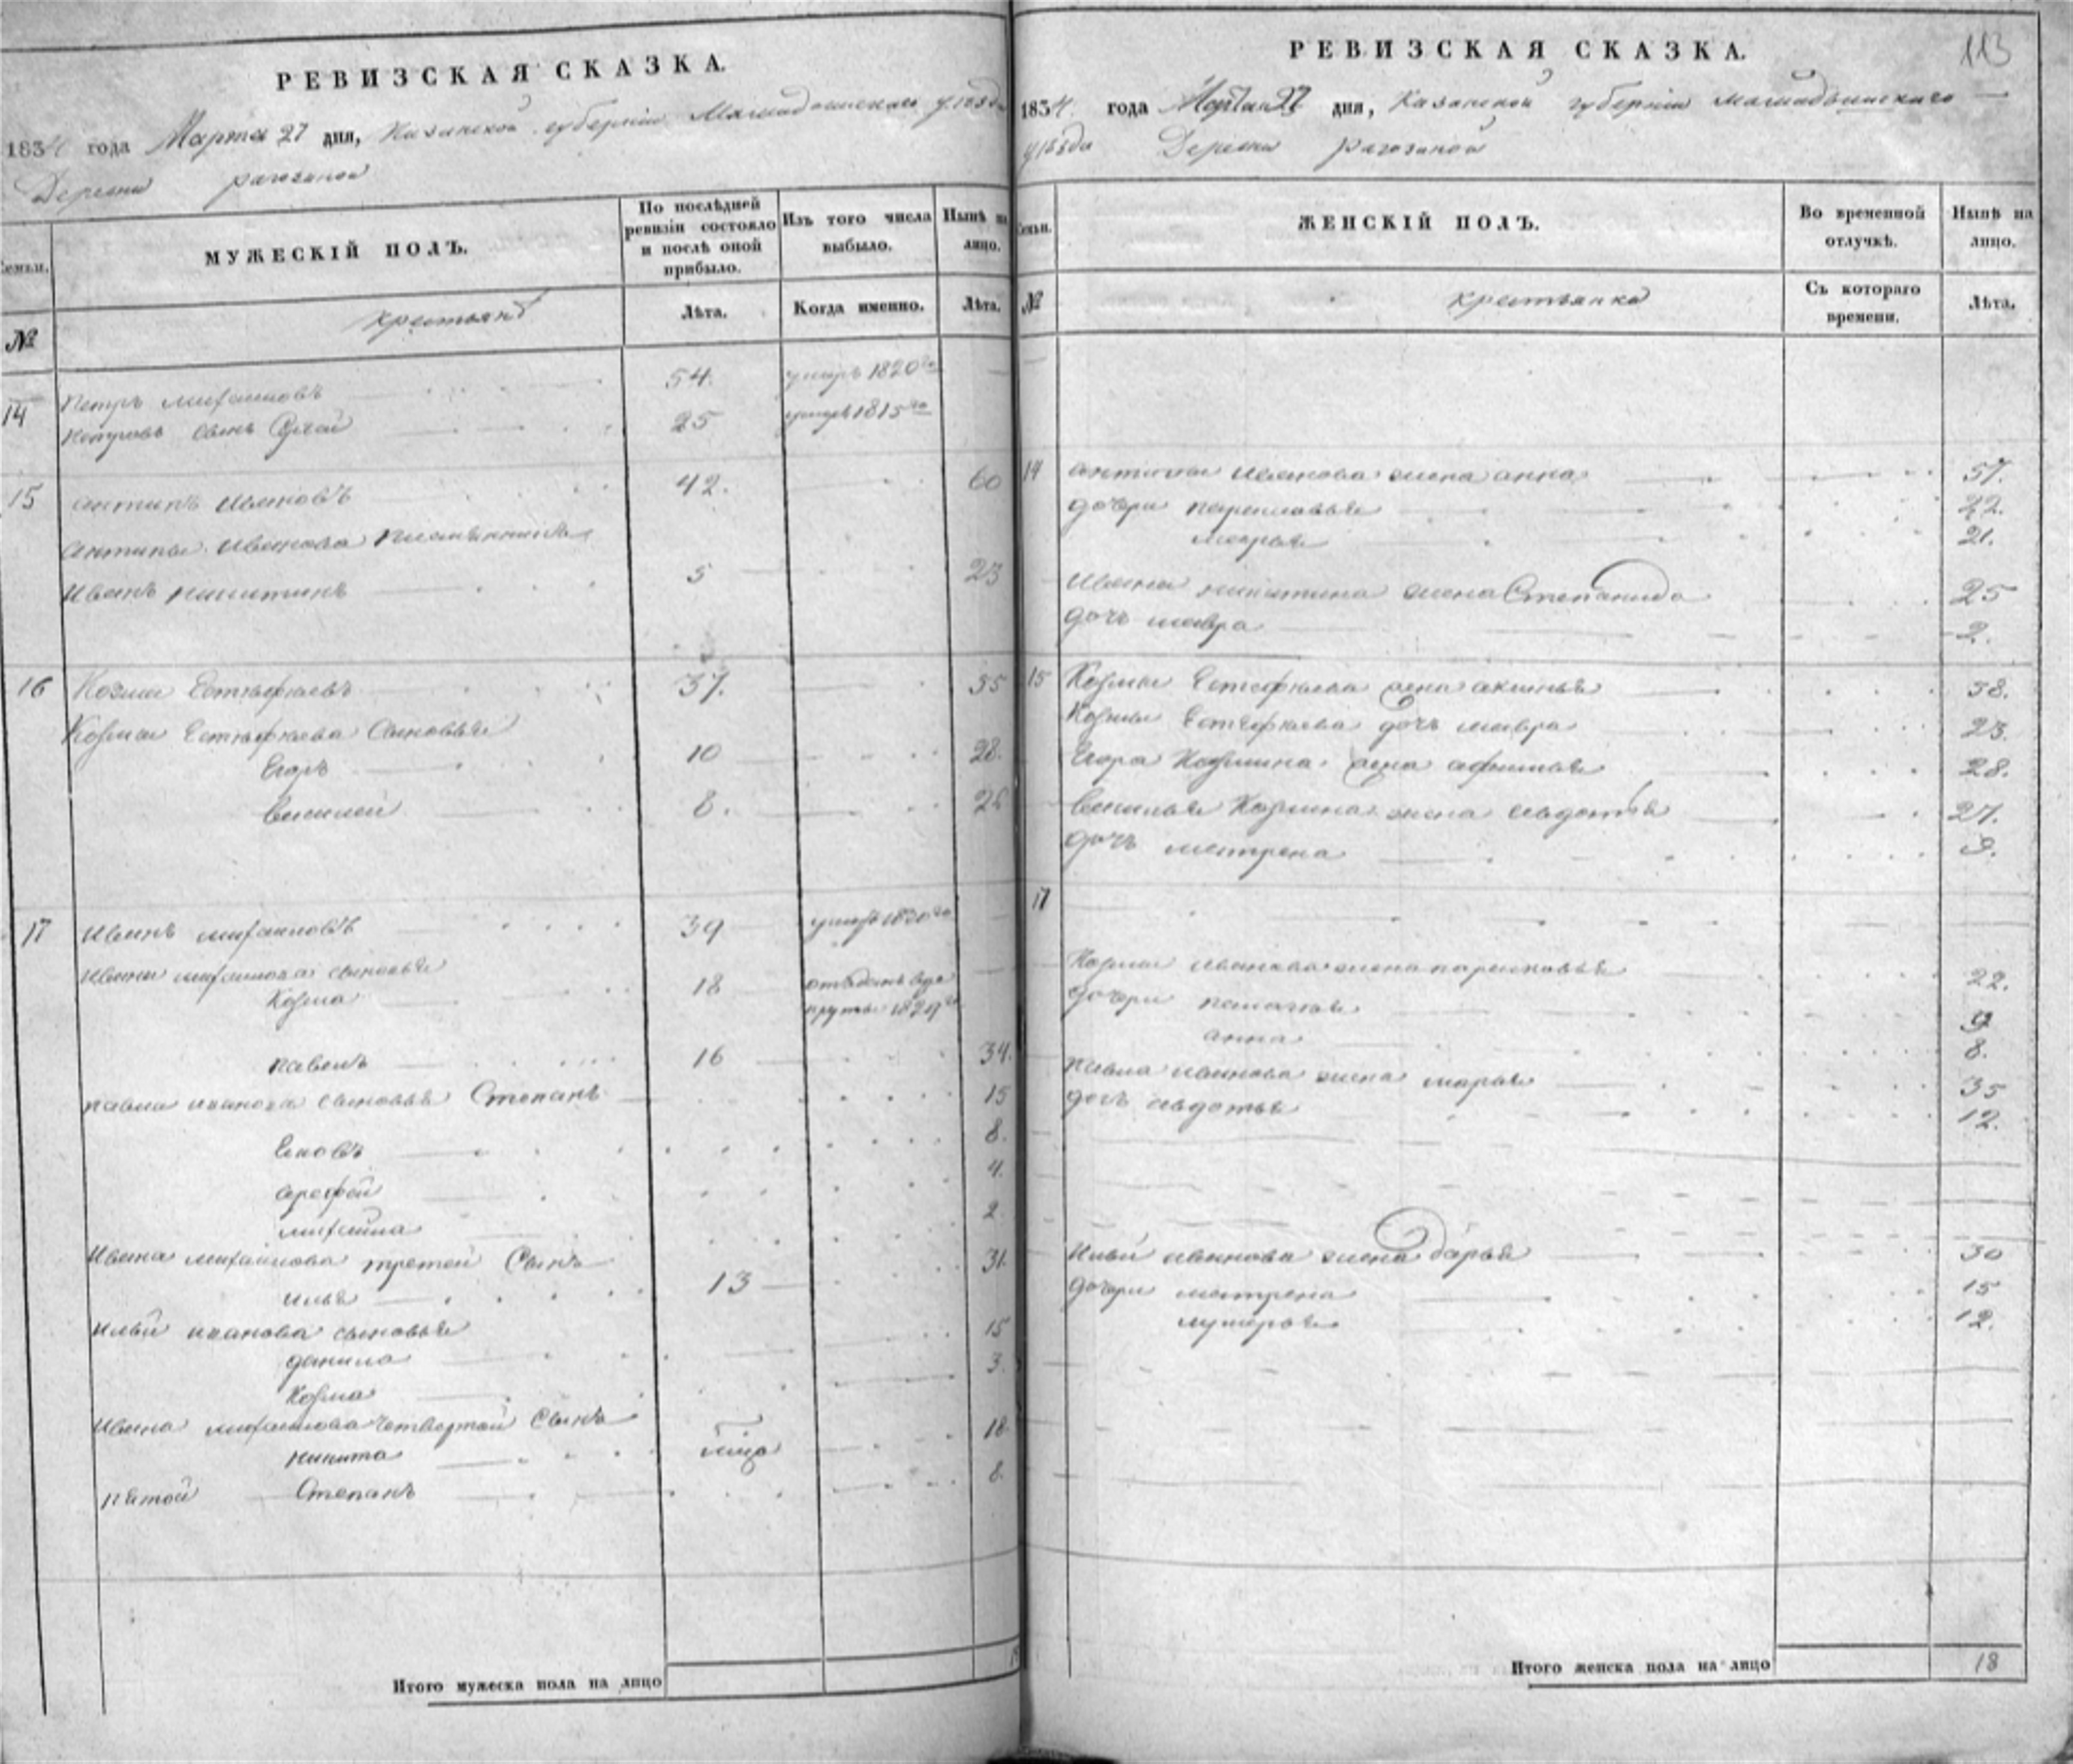 РЕВИЗСКАЯ СКАЗКА.
1834 года Марта 27 дня, Казанской губернии Мамадышскаго уезда
Деревни рагозиной
Семьи.
МУЖЕСКІЙ ПОЛЪ.
По послѣдней ревизіи состояло и послѣ оной прибыло.
Изъ того числа выбыло.
Нынѣ на лицо.
№
крестьянъ
Лѣта.
Когда именно.
Лѣта.
14 Петръ михаиловъ 54. умеръ 1820го
Петровъ сынъ 25 умеръ 1815го
15 антипъ ивановъ 42. 60
антипы иванова племянникъ
иванъ никитинъ 5 23
16 Козма Естифѣевъ 37. 55
Козмы Естифѣева сыновья
Егоръ 10 28.
Василей 8. 26
17 иванъ михаиловъ 39 умеръ 1830го
ивана михаилова сыновья
Козма 18 отъданъ въре
круты 1829го
павелъ 16 34.
павла иванова сыновья Степанъ 15
8.
арефей 4.
михайла 2
ивана михайлова третей Сынъ 31.
илья 13
ильи иванова сыновья
данила 15
Козма 3.
ивана михаилова четвертой Сынъ
никита 18
пятой Степанъ 8.
Итого мужеска пола на лицо
РЕВИЗСКАЯ СКАЗКА.
113
1834. года Марта 27 дня, Казанской губерніи мамадышскаго
уѣзда Деревни рагозиной
Семьи.
ЖЕНСКІЙ ПОЛЪ.
Во временной отлучкѣ.
Нынѣ на лицо.
№
крестьянка
Съ котораго времени.
Лѣта.
14 антипы иванова жена анна 57.
дочери парасковья 22.
марья 21.
ивана никитина жена Степанида 25
дочь мавра 2.
15 Козмы Естифѣева жена акинья 58.
Козмы Естифѣева дочь мавра 23.
Егора Козмина жена афимья 28.
Василья Козмина жена авдотья 27.
дочь матрена 3.
17
Козмы иванова жена парасковья 22.
дочери пелагея 9
анна 8.
павла иванова жена марья 35
дочь авдотья 12.
ильи иванова жена дарья 30
дочери матрена 15
лукерья 12.
Итого женска пола на лицо 18